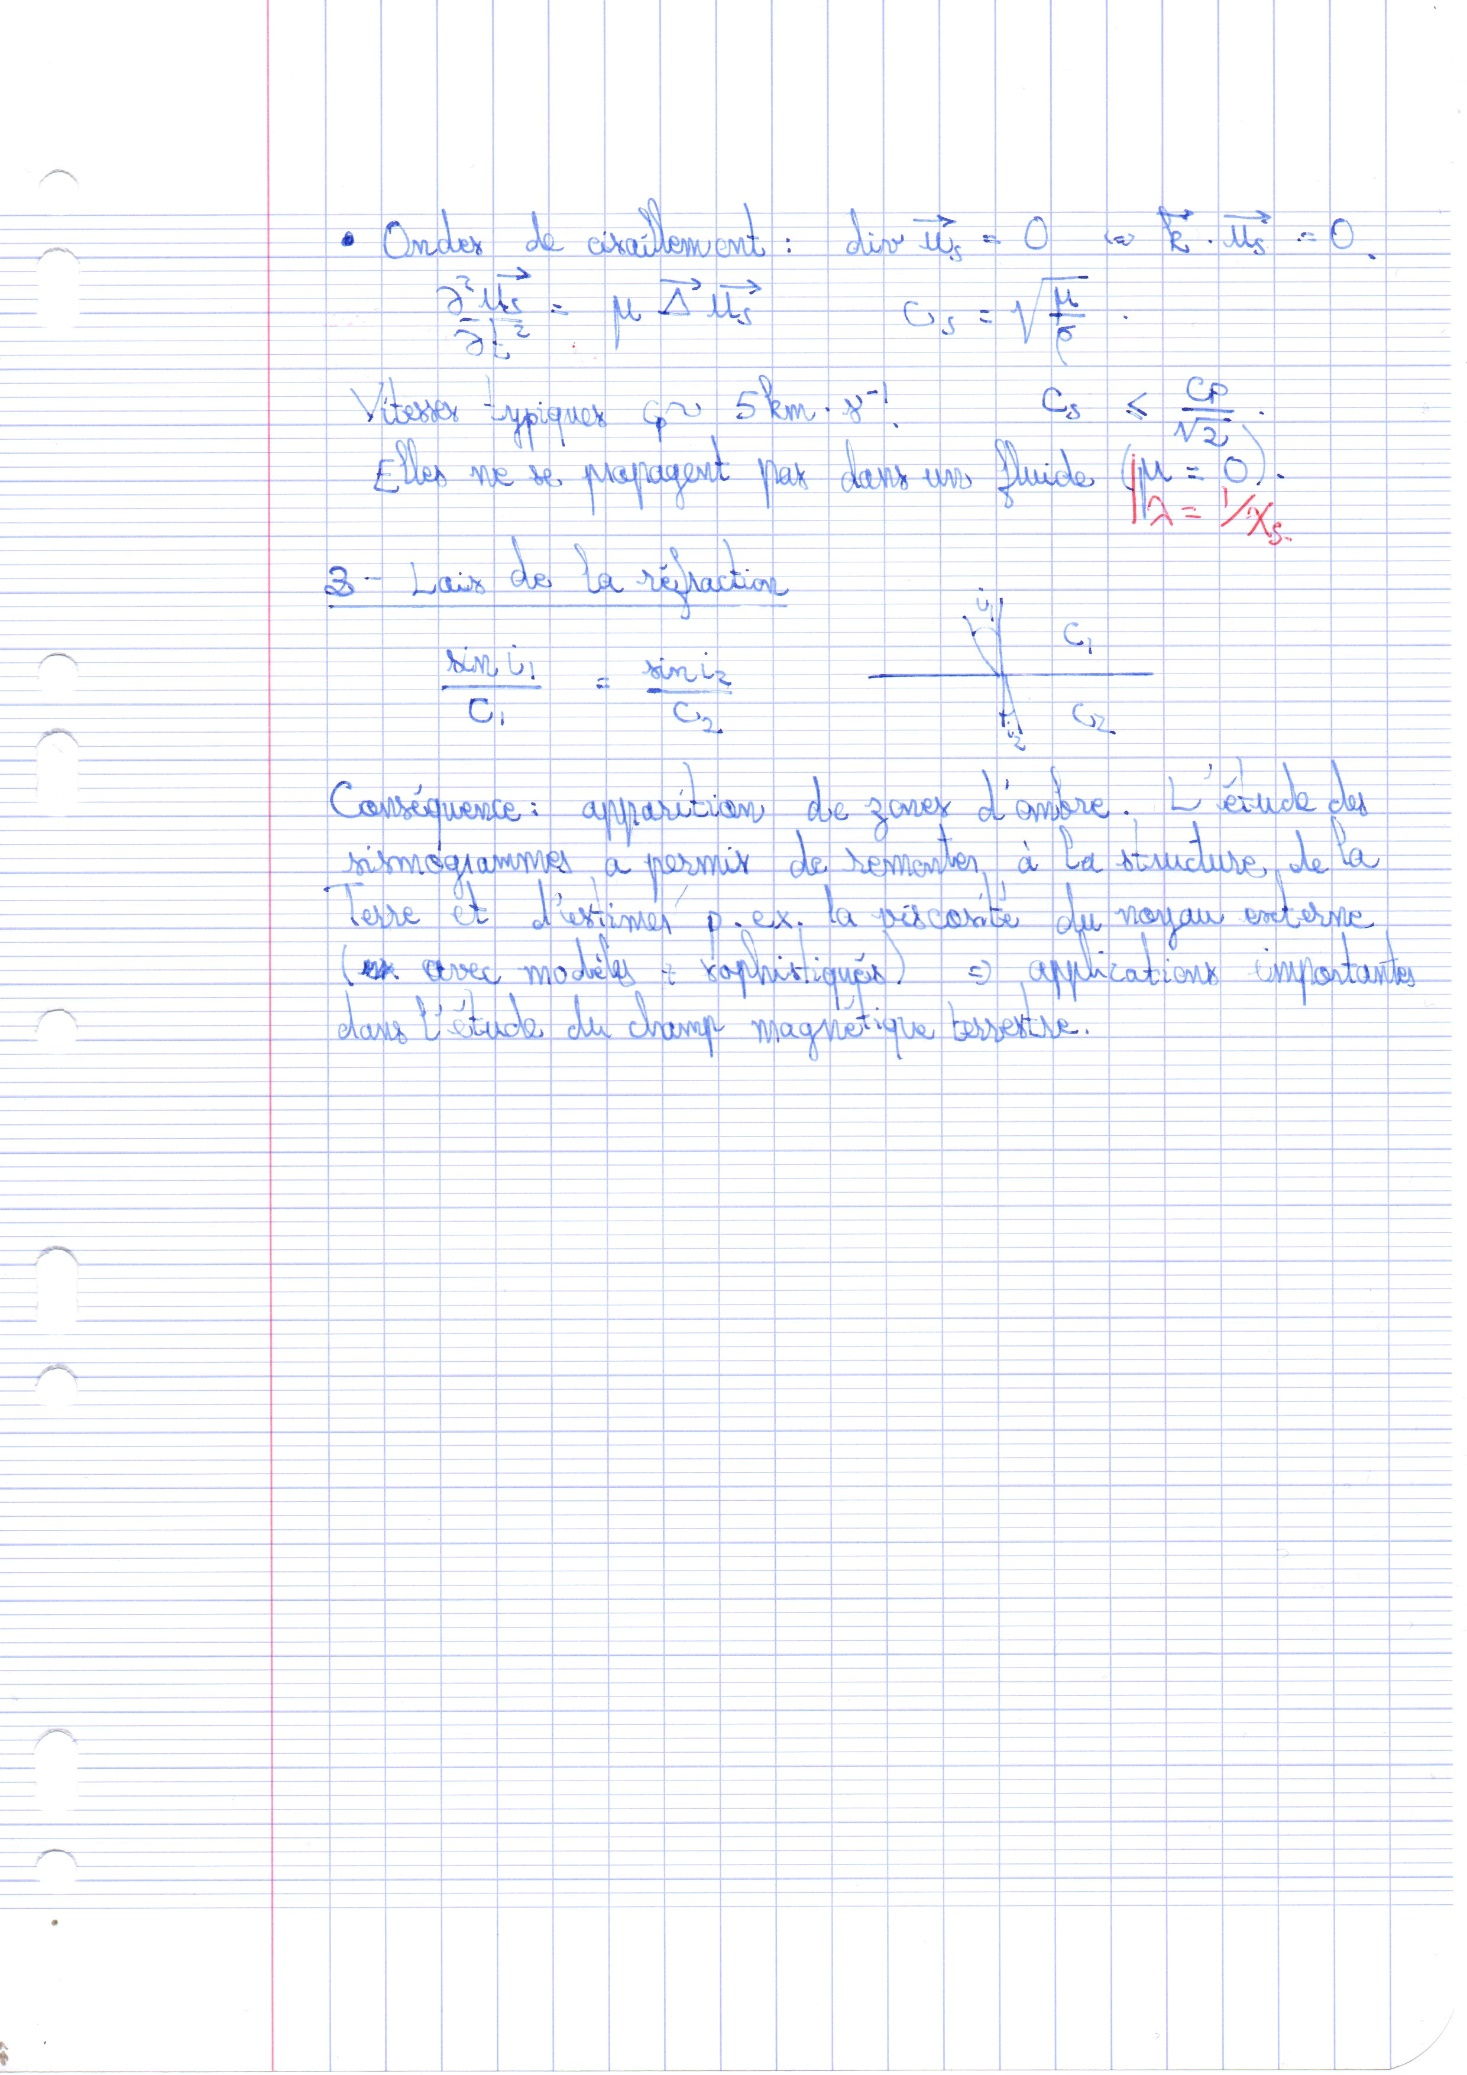 • Ondes de cisaillement : div u⃗s = 0 ⇔ k⃗ . u⃗s = 0.
∂²u⃗s/∂t² = μ Δ⃗ u⃗s    cs = √(μ/ρ) .
Vitesses typiques cp ~ 5 km . s⁻¹.    cs ≤ cp/√2 .
Elles ne se propagent pas dans un fluide (μ = 0).
λ = 1/χs.
3 - Lois de la réfraction
sin i1/C1 = sin i2/C2
i1 C1
i2 C2
Conséquence : apparition de zones d'ombre. L'étude des
sismogrammes a permis de remonter à la structure de la
Terre et d'estimer p. ex. la viscosité du noyau externe
(avec modèles + sophistiqués) ⇒ applications importantes
dans l'étude du champ magnétique terrestre.